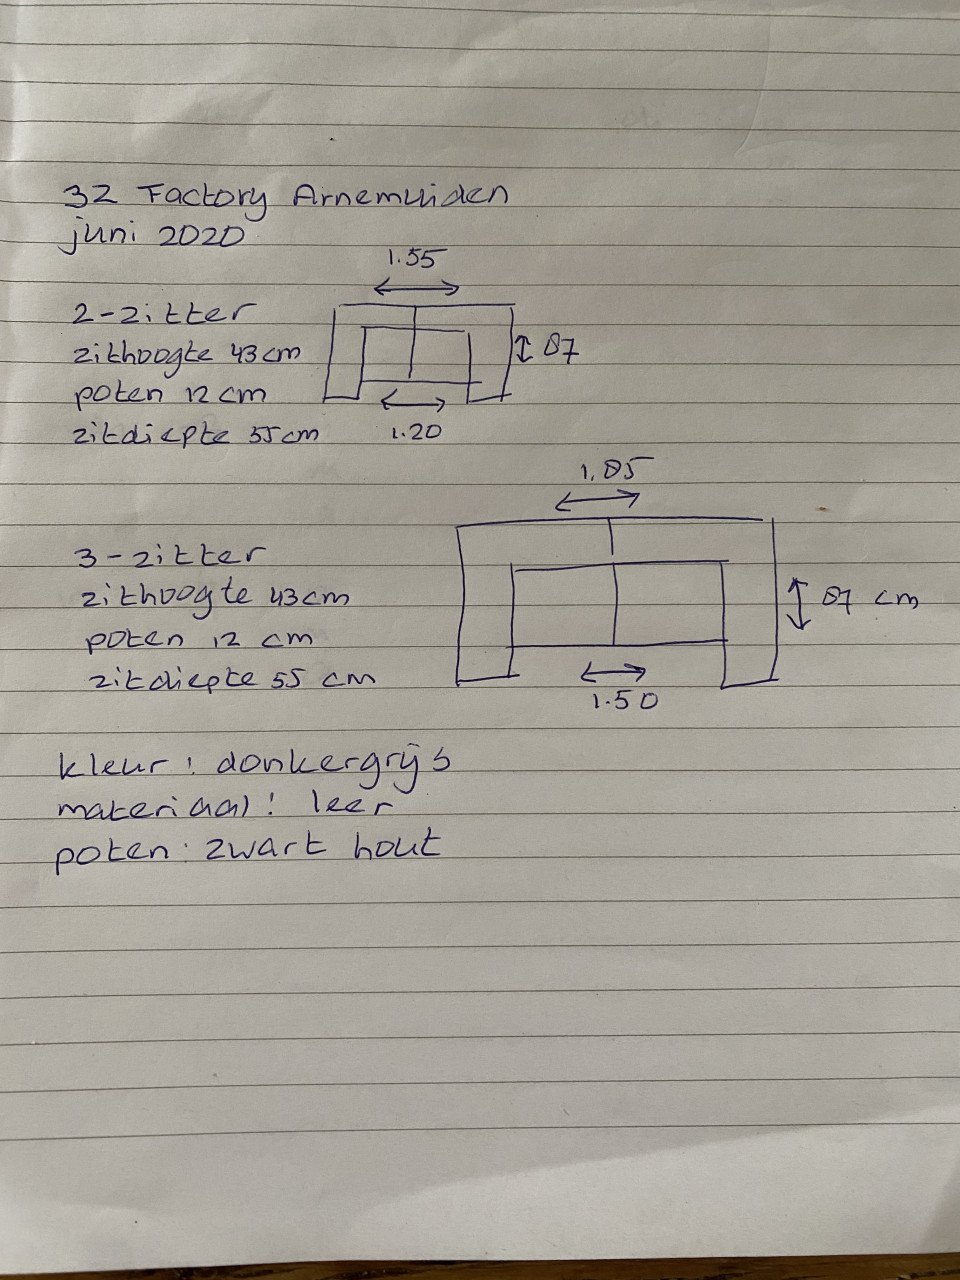 32 Factory Arnemuiden
juni 2020
1.55
2-zitter
zithoogte 43 cm
87
poten 12 cm
zitdiepte 55 cm
1.20
1.85
3-zitter
zithoogte 43 cm
87 cm
poten 12 cm
zitdiepte 55 cm
1.50
kleur: donkergrijs
materiaal: leer
poten: zwart hout